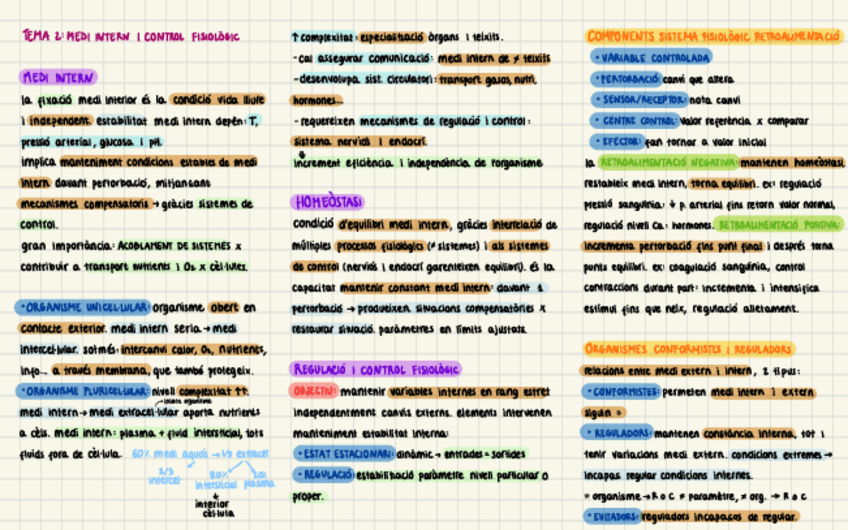 TEMA 2: MEDI INTERN I CONTROL FISIOLÒGIC
MEDI INTERN
la fixació medi interior és la condició vida lliure
i independent. estabilitat medi intern depèn: T,
pressió arterial, glucosa i pH.
implica manteniment condicions estables de medi
intern davant pertorbació, mitjançant
mecanismes compensatoris → gràcies sistemes de
control.
gran importància: ACOBLAMENT DE SISTEMES x
contribuir a transport nutrients i O₂ x cèl·lules.
• ORGANISME UNICEL·LULAR: organisme obert en
contacte exterior. medi intern seria → medi
intercel·lular. sotmès: intercanvi calor, O₂, nutrienes,
info... a través membrana, que també protegeix.
• ORGANISME PLURICEL·LULAR: nivell complexitat ↑↑.
medi intern → medi extracel·lular aporta nutrients
a cèls. medi intern: plasma + fluid intersticial, tots
fluids fora de cèl·lula. 60% medi aquós → 1/3 extracel
2/3 intercel
80% intersticial
20% plasma
interior
cèl·lula
↑ complexitat: especialització òrgans i teixits.
- cal assegurar comunicació: medi intern de ≠ teixits
- desenvolupa sist. circulatori: transport gasos, nutri,
hormones...
- requereixen mecanismes de regulació i control:
sistema nerviós i endocrí.
increment eficiència i independència de l'organisme
HOMEÒSTASI
condició d'equilibri medi intern, gràcies interrelació de
múltiples processos fisiològics (≠ sistemes) i als sistemes
de control (nerviós i endocrí garenteixen equilibri). és la
capacitat mantenir constant medi intern: davant 1
pertorbació → produeixen situacions compensatòries x
restaurar situació. paràmetres en límits ajustats.
REGULACIÓ I CONTROL FISIOLÒGIC
OBJECTIU: mantenir variables internes en rang estret
independentment canvis externs. elements intervenen
manteniment estabilitat interna:
• ESTAT ESTACIONARI: dinàmic → entrades = sortides
• REGULACIÓ: estabilització paràmetre nivell particular o
proper.
COMPONENTS SISTEMA FISIOLÒGIC RETROALIMENTACIÓ
• VARIABLE CONTROLADA
• PERTORBACIÓ: canvi que altera
• SENSOR/RECEPTOR: nota canvi
• CENTRE CONTROL: valor referència x comparar
• EFECTOR: fan tornar a valor inicial
la RETROALIMENTACIÓ NEGATIVA: mantenen homeòstasi,
restableix medi intern, torna equilibri. ex: regulació
pressió sanguínia: ↓ p. arterial fins retorn valor normal,
regulació nivell Ca: hormones. RETROALIMENTACIÓ POSITIVA:
incrementa pertorbació fins punt final i després torna
punt equilibri. ex: coagulació sanguínia, control
contraccions durant part: incrementa i intensifica
estímul fins que neix, regulació alletament.
ORGANISMES CONFORMISTES I REGULADORS
relacions entre medi extern i intern, 2 tipus:
• CONFORMISTES: permeten medi intern i extern
siguin =
• REGULADORS: mantenen constància interna, tot i
tenir variacions medi extern. condicions extremes →
incapaç regular condicions internes.
= organisme → R o C ≠ paràmetre, ≠ org. → R o C
• EVITADORS: reguladors incapaços de regular.